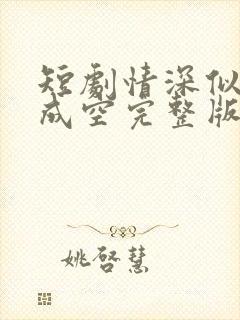 短劇情深似
成空完整版
姚啓慧